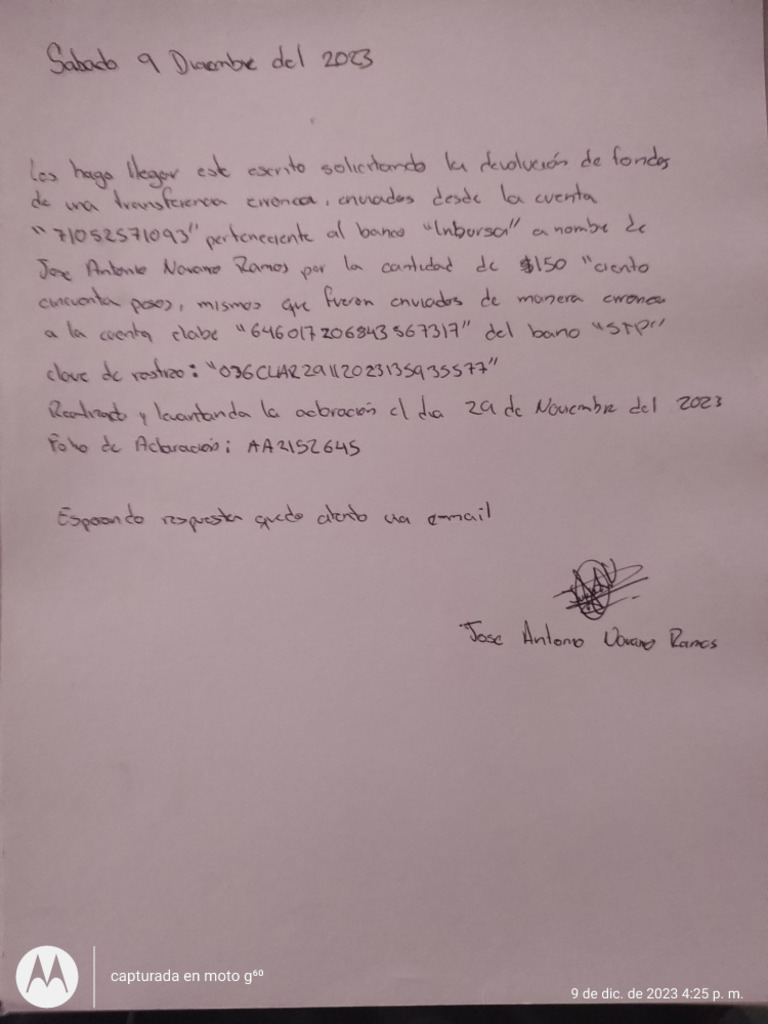 Sabado 9 Diciembre del 2023
Les hago llegar este escrito solicitando la devolución de fondos
de una transferencia erronea, enviados desde la cuenta
"71052571093" perteneciente al banco "Inbursa" a nombre de
Jose Antonio Navarro Ramos por la cantidad de $150 "ciento
cincuenta pesos, mismos que fueron enviados de manera erronea
a la cuenta clabe "646017206843567317" del banco "STP"
clave de rastreo: "036CLAR29112023135935577"
Realizado y levantando la aclaración el dia 29 de Noviembre del 2023
Folio de Aclaración: AA2152645
Esperando respuesta quedo atento via e-mail
Jose Antonio Navarro Ramos
capturada en moto g⁶⁰
9 de dic. de 2023 4:25 p. m.